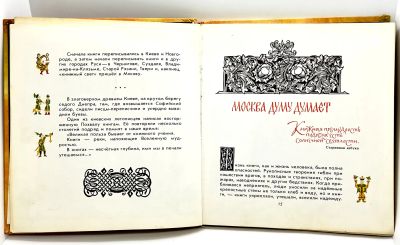 Сначала книги переписывались в Киеве и Новго-
роде, а затем начали переписывать книги и в дру-
гих городах Руси — в Чернигове, Суздале, Влади-
мире-на-Клязьме, Старой Рязани, Твери и, наконец,
«книжный свет» пришёл в Москву.
* * *
В златоверхом древнем Киеве, на крутом бере-
гу седого Днепра, там, где возвышается Софийский
собор, сидели писцы-переписчики и упорно выво-
дили буквы.
Один из киевских летописцев написал востор-
женную Похвалу книгам. Её повторяли несколько
столетий подряд, и помнят в наше время:
«Велика польза бывает от книжного учения.
Книги — реки, наполняющие Вселенную муд-
ростью.
В книгах — несчётная глубина, ими мы в печали
утешаемся...»
МОСКВА ДУМУ ДУМАЕТ
Книжная премудрость
подобна есть
солнечной светлости.
Старинная азбука
Жизнь книги, как и жизнь человека, была полна
опасностей. Рукописные творения гибли при
нашествии врагов, в походах и странствиях, при по-
жарах, наводнениях и других бедствиях. Когда при-
ближался неприятель, люди уносили на надёжные
крепостные стены не только хлеб и воду, но и
книги — книги укрепляли, утешали, вселяли надежду.
15